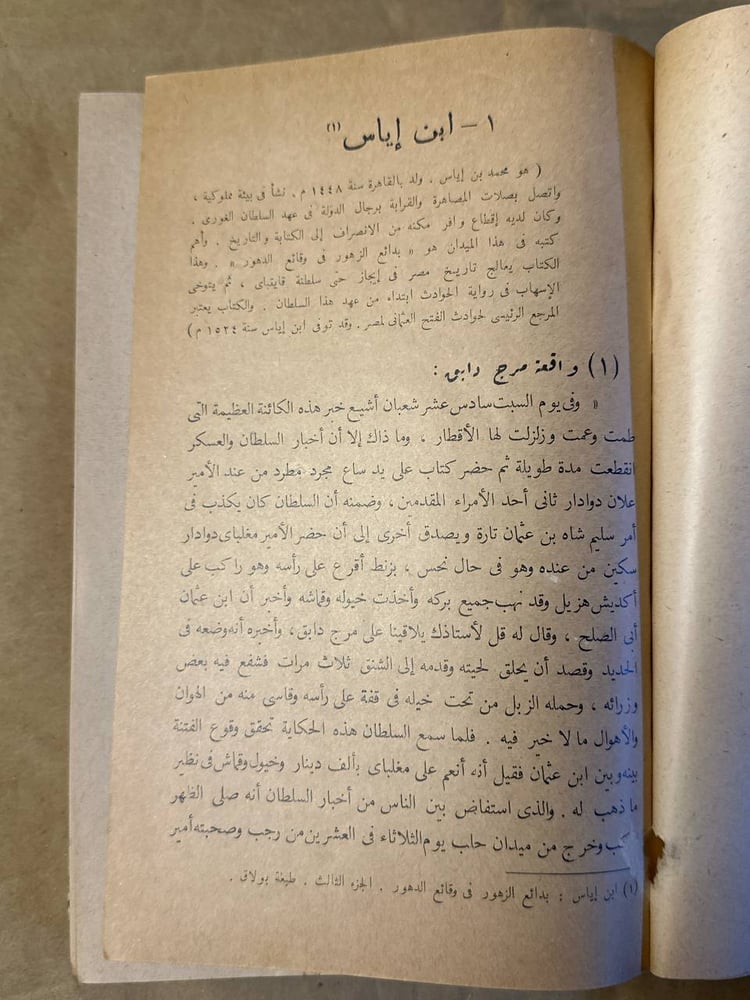 ١ – ابن إياس (١)
( هو محمد بن إياس . ولد بالقاهرة سنة ١٤٤٨ م . نشأ فى بيئة مملوكية ،
واتصل بصلات المصاهرة والقرابة برجال الدولة فى عهد السلطان الغورى .
وكان لديه إقطاع وافر مكنه من الانصراف إلى الكتابة والتاريخ . وأهم
كتبه فى هذا الميدان هو « بدائع الزهور فى وقائع الدهور » . وهذا
الكتاب يعالج تاريخ مصر فى إيجاز حتى سلطنة قايتباى ، ثم يتوخى
الإسهاب فى رواية الحوادث ابتداء من عهد هذا السلطان . والكتاب يعتبر
المرجع الرئيسى لحوادث الفتح العثمانى لمصر . وقد توفى ابن إياس سنة ١٥٢٤ م )
(١) واقعة مرج دابق :
« وفى يوم السبت سادس عشر شعبان أشيع خبر هذه الكائنة العظيمة التى
طمت وعمت وزلزلت لها الأقطار ، وما ذاك إلا أن أخبار السلطان والعسكر
انقطعت مدة طويلة ثم حضر كتاب على يد ساع مجرد مطرد من عند الأمير
علان دوادار ثانى أحد الأمراء المقدمين ، وضمنه أن السلطان كان يكذب فى
أمر سليم شاه بن عثمان تارة ويصدق أخرى إلى أن حضر الأمير مغلباى دوادار
سكين من عنده وهو فى حال نحس ، بزنط أقرع على رأسه وهو راكب على
أكديش هزيل وقد نهب جميع بركه وأخذت خيوله وقماشه وأخبر أن ابن عثمان
أبى الصلح ، وقال له قل لأستاذك يلاقينا على مرج دابق ، وأخبره أنه وضعه فى
الحديد وقصد أن يحلق لحيته وقدمه إلى الشنق ثلاث مرات فشفع فيه بعض
وزرائه ، وحمله الزبل من تحت خيله فى قفة على رأسه وقاسى منه من الهوان
والأهوال ما لا خبر فيه . فلما سمع السلطان هذه الحكاية تحقق وقوع الفتنة
بينه وبين ابن عثمان فقيل أنه أنعم على مغلباى بألف دينار وخيول وقماش فى نظير
ما ذهب له . والذى استفاض بين الناس من أخبار السلطان أنه صلى الظهر
وخرج من ميدان حلب يوم الثلاثاء فى العشرين من رجب وصحبته أمير
(١) ابن إياس : بدائع الزهور فى وقائع الدهور . الجزء الثالث . طبعة بولاق .